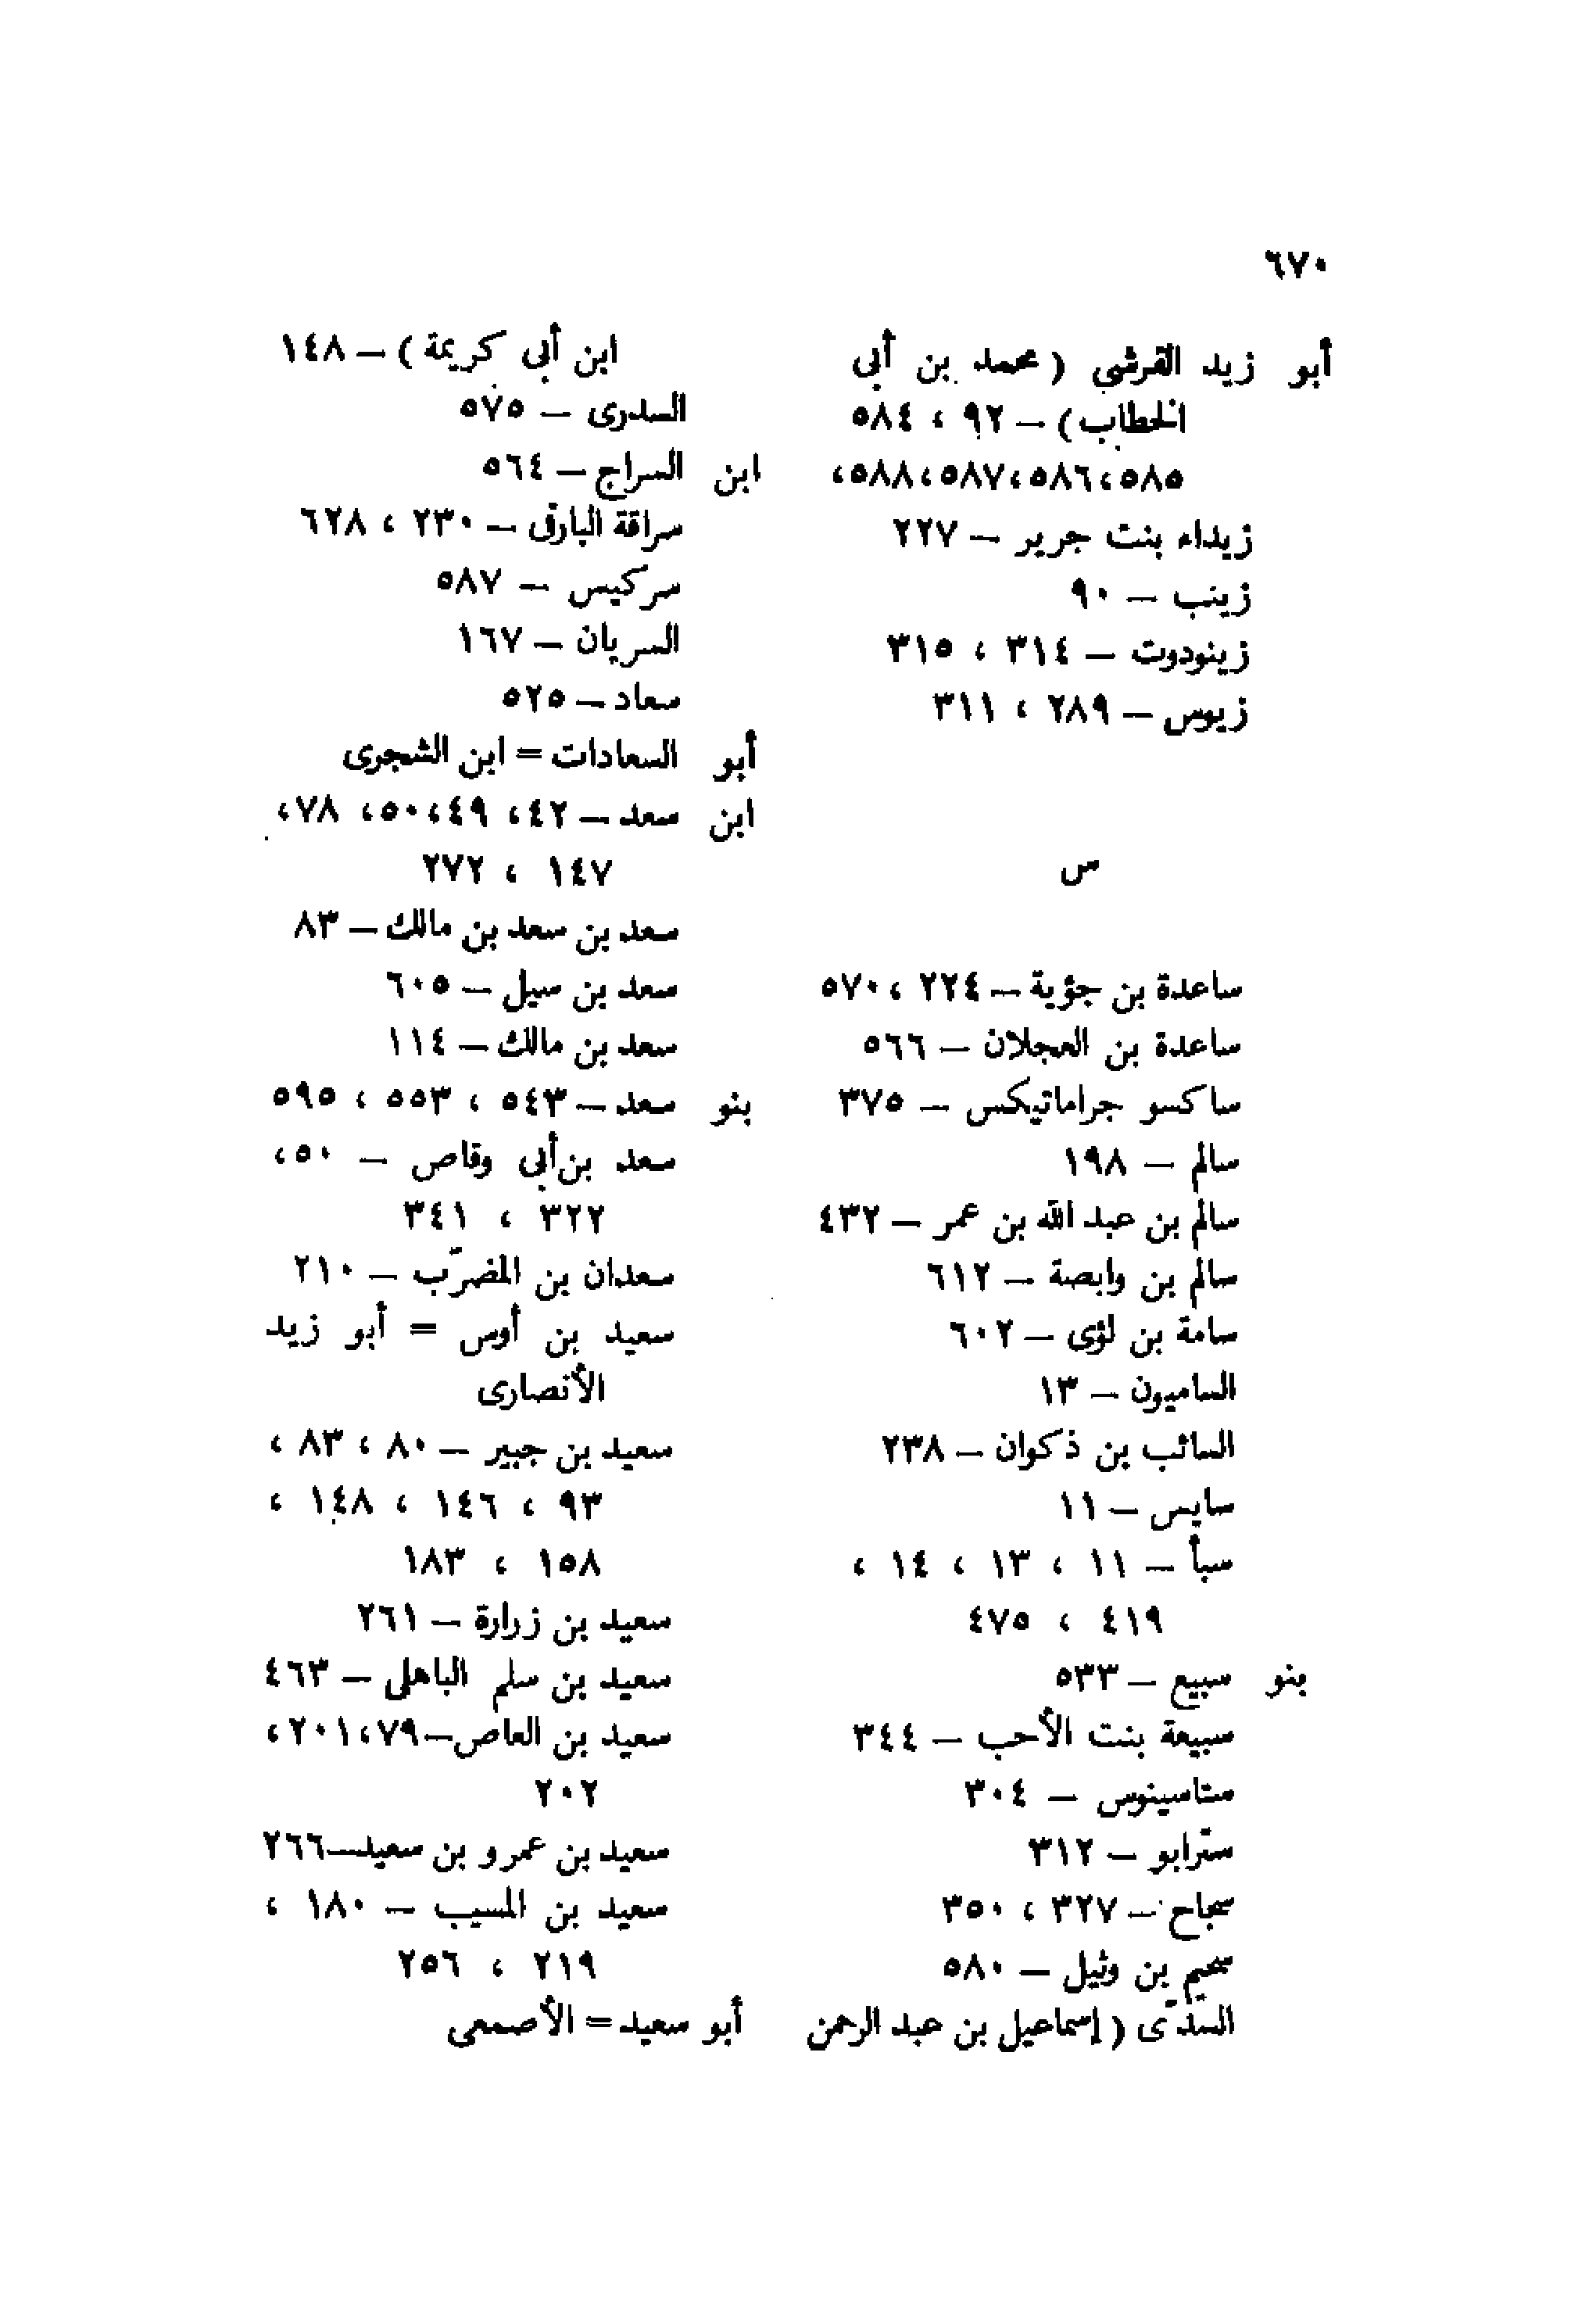 ٦٧٠
أبو زيد القرشي ( محمد بن أبى
الخطاب ) – ٩٢ ، ٥٨٤
٥٨٥،٥٨٦،٥٨٧،٥٨٨،
زيداء بنت جرير – ٢٢٧
زينب – ٩٠
زينودوت – ٣١٤ ، ٣١٥
زيوس – ٢٨٩ ، ٣١١
س
ساعدة بن جؤية – ٢٢٤ ، ٥٧٠
ساعدة بن العجلان – ٥٦٦
ساكسو جراماتيكس – ٣٧٥
سالم – ١٩٨
سالم بن عبد الله بن عمر – ٤٣٢
سالم بن وابصة – ٦١٢
سامة بن لؤى – ٦٠٢
الساميون – ١٣
السائب بن ذكوان – ٢٣٨
سايس – ١١
سبأ – ١١ ، ١٣ ، ١٤ ،
٤١٩ ، ٤٧٥
بنو سبيع – ٥٣٣
سبيعة بنت الأحب – ٣٤٤
ستاسينوس – ٣٠٤
سترابو – ٣١٢
سجاح – ٣٢٧ ، ٣٥٠
سحيم بن وثيل – ٥٨٠
السدّى ( إسماعيل بن عبد الرحمن
ابن أبى كريمة ) – ١٤٨
السدرى – ٥٧٥
ابن السراج – ٥٦٤
سراقة البارقى – ٢٣٠ ، ٦٢٨
سركيس – ٥٨٧
السريان – ١٦٧
سعاد – ٥٢٥
أبو السعادات = ابن الشجرى
ابن سعد – ٤٢، ٤٩،٥٠، ٧٨،
١٤٧ ، ٢٧٢
سعد بن سعد بن مالك – ٨٣
سعد بن سيل – ٦٠٥
سعد بن مالك – ١١٤
بنو سعد – ٥٤٣ ، ٥٥٣ ، ٥٩٥
سعد بن أبى وقاص – ٥٠،
٣٢٢ ، ٣٤١
سعدان بن المضرّب – ٢١٠
سعيد بن أوس = أبو زيد
الأنصارى
سعيد بن جبير – ٨٠ ، ٨٣ ،
٩٣ ، ١٤٦ ، ١٤٨ ،
١٥٨ ، ١٨٣
سعيد بن زرارة – ٢٦١
سعيد بن سلم الباهلى – ٤٦٣
سعيد بن العاص–٧٩،٢٠١،
٢٠٢
سعيد بن عمرو بن سعيد–٢٦٦
سعيد بن المسيب – ١٨٠ ،
٢١٩ ، ٢٥٦
أبو سعيد = الأصمعى